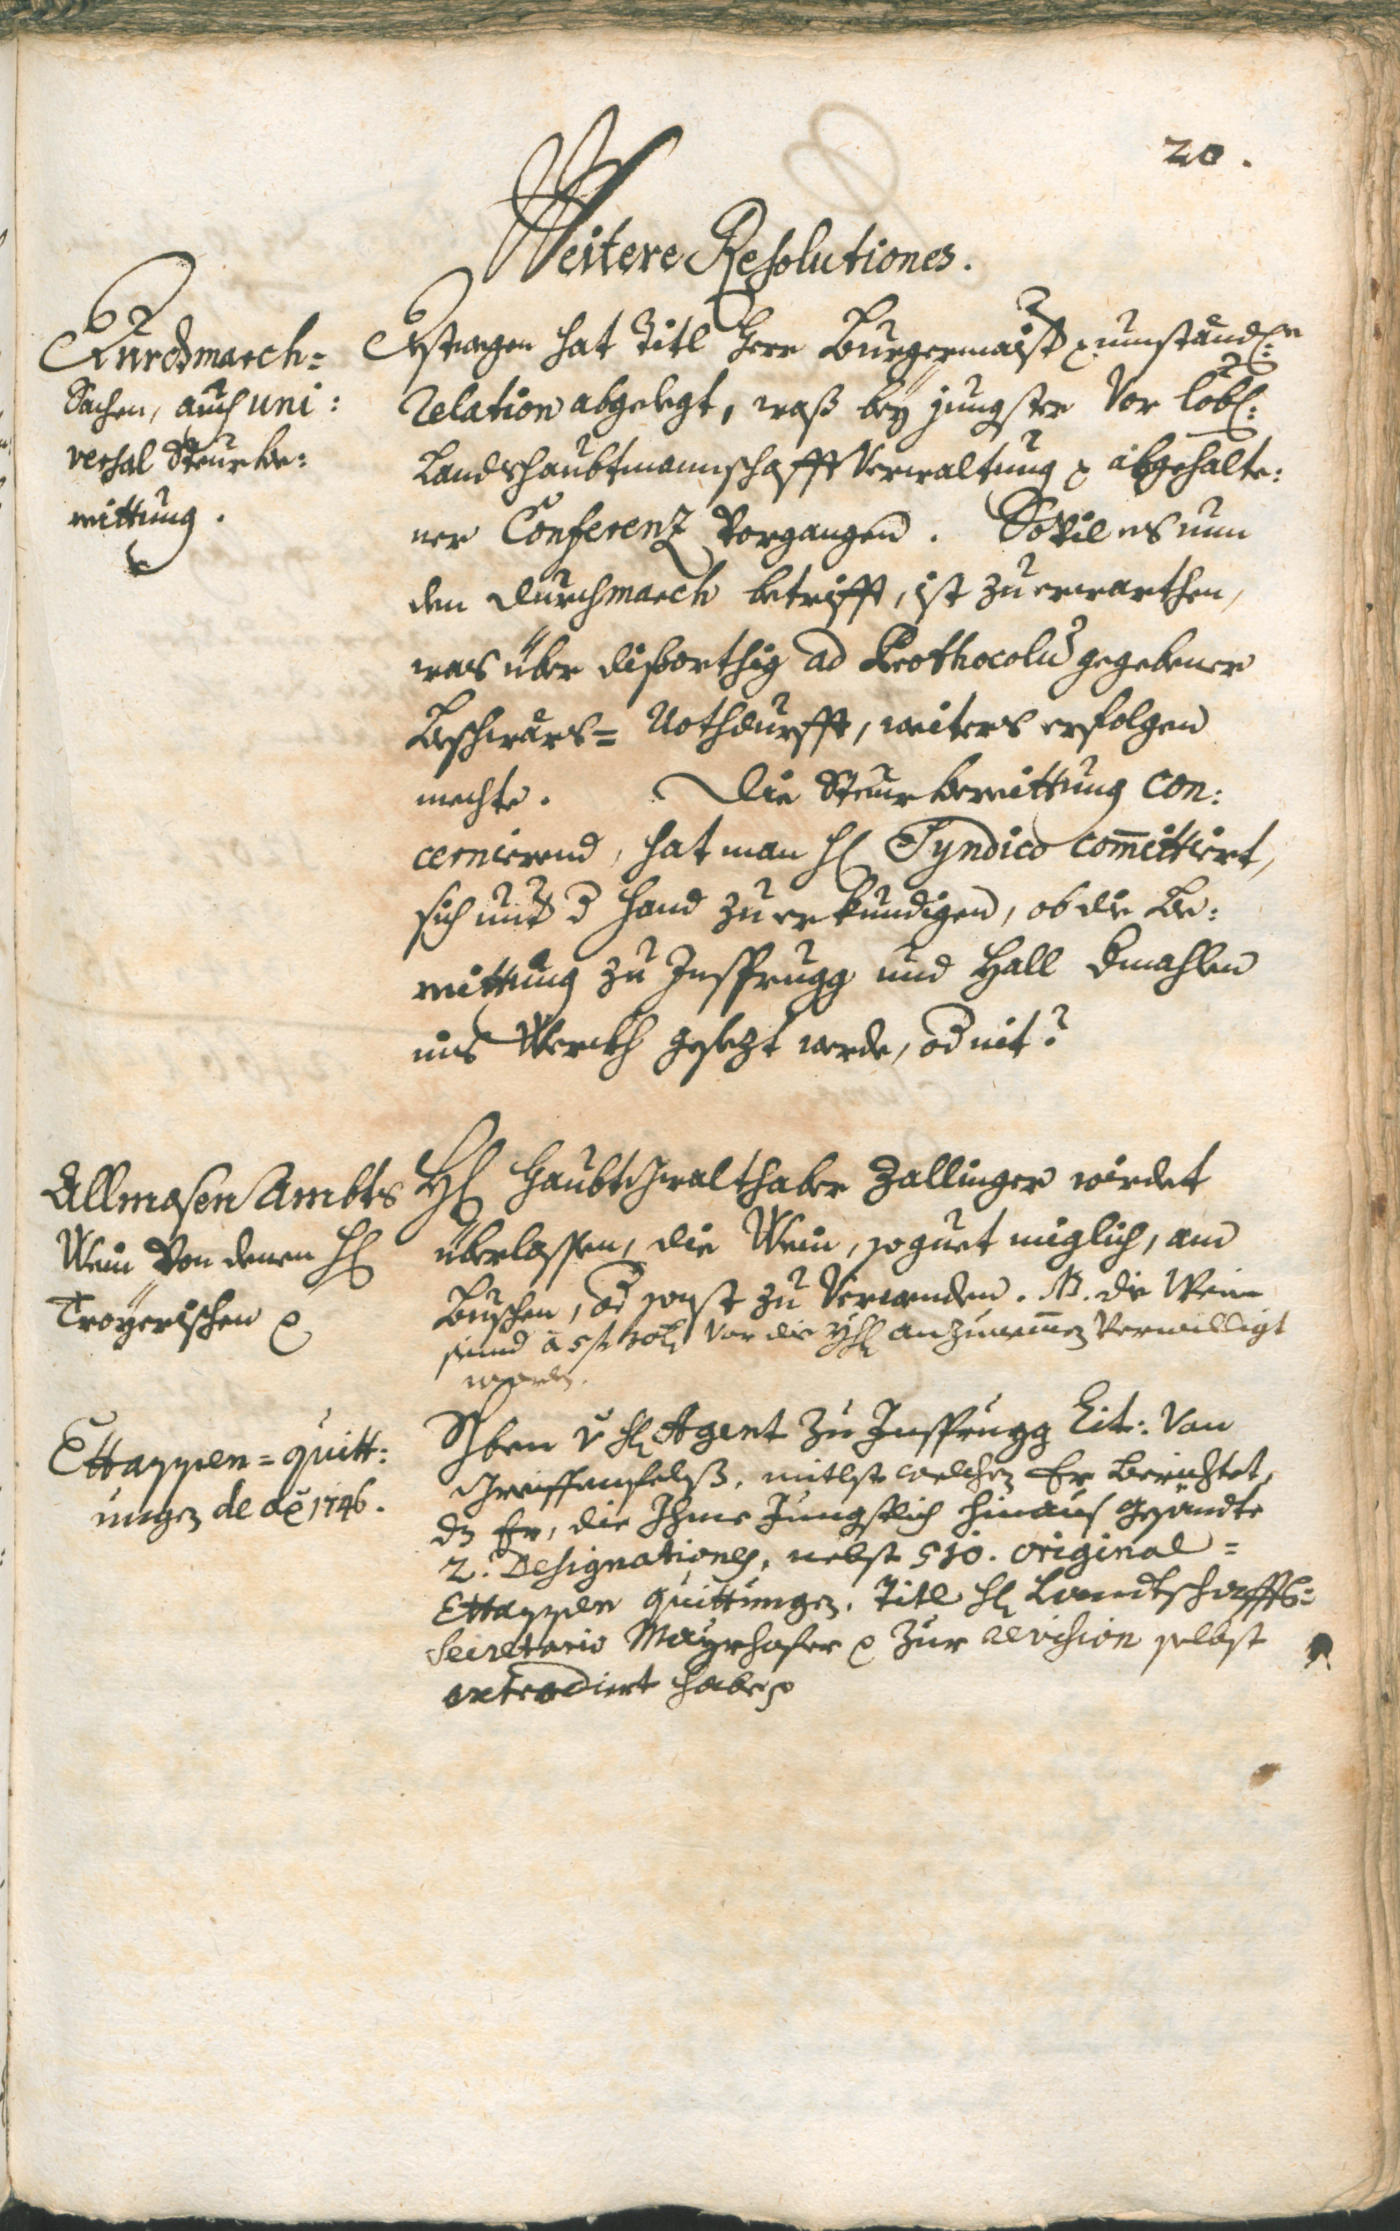 20.
Weitere Resolutiones.
Durchmarch=
Sachen, auch uni:
versal Steurbe:
mittung.
Erstwegen hat Titl Herr Burgermaister umständl:
relation abgelegt, waß bey jungster Vor löbl:
Landtshaubtmannschafft Verwaltung p abgehalte:
ner Conferenz vorgangen. Sovil es nun
den durchmarch betrifft, ist zu erwarthen,
was über dißorthig ad Prothocolum gegebener
Beschwärs= Nothdurfft, weiters erfolgen
mechte. Die Steur bereittung con:
cernierend, hat man H Syndico com̅ittirt,
sich und der Hand zu erkundigen, ob die Be:
reittung zu Insprugg und Hall dermahlen
ins Werckh gesezt werde, oder nit?
Allmosen Ambts
Wein von denen H
Troyerischen p
H Haubtgwalthaber Zallinger wirdet
überlassen, die Wein, so guet miglich, an
Buschen, oder sonst zu Verwenden. NB. die Wein
seind à 5 f Vor die anzunem̅en Verwilligt
worden.
Ettappen=quitt:
ungen de aō 1746.
Schreiben v H Agent zu Insprugg Lit: Von
Greiffensfelß, mitlst welchen Er berichtet,
dz Er, die Ihme Jungstlich hinaus gesandte
2. Designationes, nebst 510. original=
Ettappen quittungen, Titl H Landtschaffts=
Secretario Mayrhofer p zur revision selbst
extradiert habe p